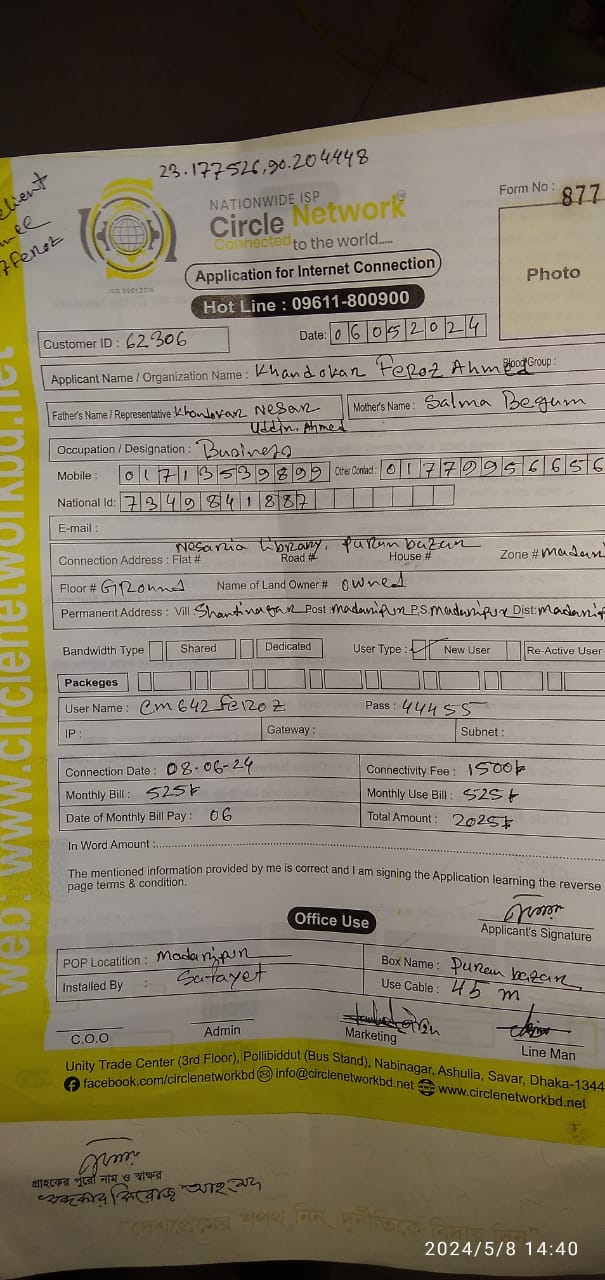 23.177526,90.204448
client
7Feroz
NATIONWIDE ISP
Circle Network
Connected to the world.....
ISO 9001:2015
Form No : 877
Photo
Application for Internet Connection
Hot Line : 09611-800900
Customer ID : 62306
Date: 06052024
Applicant Name / Organization Name : Khandokar Feroz Ahmed Blood Group :
Father's Name / Representative Khondokar Nesar Uddin, Ahmed
Mother's Name : Salma Begum
Occupation / Designation : Business
Mobile : 01713539899 Other Contact : 01779956656
National Id: 7349841887
E-mail :
Nesaria Library, puran bazar
Connection Address : Flat # Road # House # Zone # madari
Floor # Ground Name of Land Owner # owned
Permanent Address : Vill Shantinagar Post madaripur P.S. madaripur Dist: madarip
Bandwidth Type Shared Dedicated User Type : New User Re-Active User
Packeges
User Name : cm642feroz Pass : 44455
IP : Gateway : Subnet :
Connection Date : 08-06-24 Connectivity Fee : 1500৳
Monthly Bill : 525৳ Monthly Use Bill : 525৳
Date of Monthly Bill Pay : 06 Total Amount : 2025৳
In Word Amount :
The mentioned information provided by me is correct and I am signing the Application learning the reverse
page terms & condition.
Office Use
Applicant's Signature
POP Locatition : Madaripur Box Name : Puran bazar,
Installed By : Safayet Use Cable : 45 m
C.O.O Admin Marketing Line Man
Unity Trade Center (3rd Floor), Pollibiddut (Bus Stand), Nabinagar, Ashulia, Savar, Dhaka-1344
facebook.com/circlenetworkbd info@circlenetworkbd.net www.circlenetworkbd.net
web: www.circlenetworkbd.net
গ্রাহকের পুরো নাম ও স্বাক্ষর
খন্দকার ফিরোজ আহমেদ
"দেশপ্রেমের শপথ নিন, দুর্নীতিকে বিদায় দিন"
2024/5/8 14:40